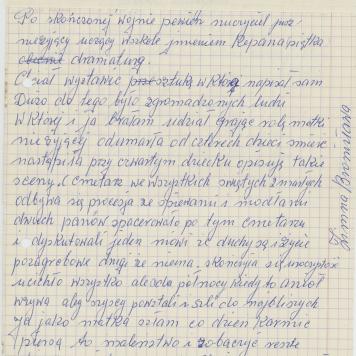 Po skończonej wojnie pewien nuczyciel już
nieżyjący uczący w szkole jmieniem Kepana piątka
obecnie dramaturg.
Chciał wystawić sztukę w której napisał sam
Dużo do tego było zgromadzonych ludzi
w której i ja brałam udział Grając rolę matki
nieżyjącej odumarła od czterech dzieci śmierć
nastąpiła przy czwartym dziecku opisuję takie
sceny. Cmetarz we wszystkich świętych zmarłych
odbywa się procesja ze śpiewami i modłami
dwuch panów spacerowało po tym cmetarzu
i dyskutowali jeden mówi że duchy są i życie
pozagrobowe drugi że niema, skończyła się uroczystość
ucichło wszystko ale do północy kiedy to anioł
wzywa aby wszyscy powstali i szli do najbliższych
Ja jako matka szłam co dzień karmić
to maleństwo i zobaczyć resztę
Zimna